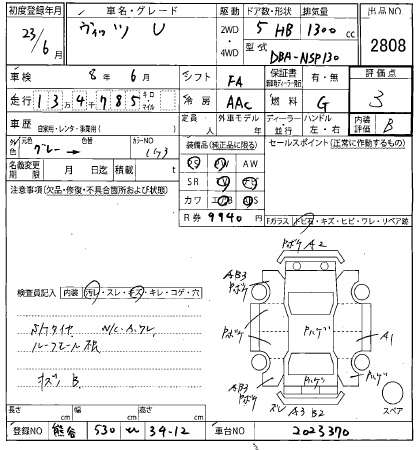 初度登録年月 車名・グレード 駆動 ドア数・形状 排気量 出品NO
23/6月 ヴィッツ U 2WD・4WD 5 HB 1300cc 2808
型式 DBA-NSP130
車検 8年 6月 シフト FA 保証書 有・無 評価点 3
走行 134785 キロ マイル 冷房 AAC 燃料 G
車歴 自家用・レンタ・事業用( ) 定員 人 外車モデル年 ディーラー・並行 ハンドル 左・右 内装評価 B
外色 元色 グレー 色替 カラーNO 1G3
装備品(純正品に限る) セールスポイント(正常に作動するもの)
名義変更期限 月 日迄 積載 t
PS PW AW
SR TV ナビ
カワ エアB ABS
R券 9940円
注意事項(欠品・修復・不具合箇所および状態)
Fガラス トビ石・キズ・ヒビ・ワレ・リペア跡
検査員記入 内装 汚レ・スレ・キズ・キレ・コゲ・穴
S/Tタイヤ N/C.A.ワレ
ルーフモール
キズ B
Pボケ A2
AB3 Pボケ
Pボケ
Pハゲ
A1
AB3 Pボケ
Pハゲ
Pハゲ
スレ A3 B2
スペア
長さ cm 幅 cm 高さ cm
登録NO 熊谷 530 34-12 車台NO 2023370